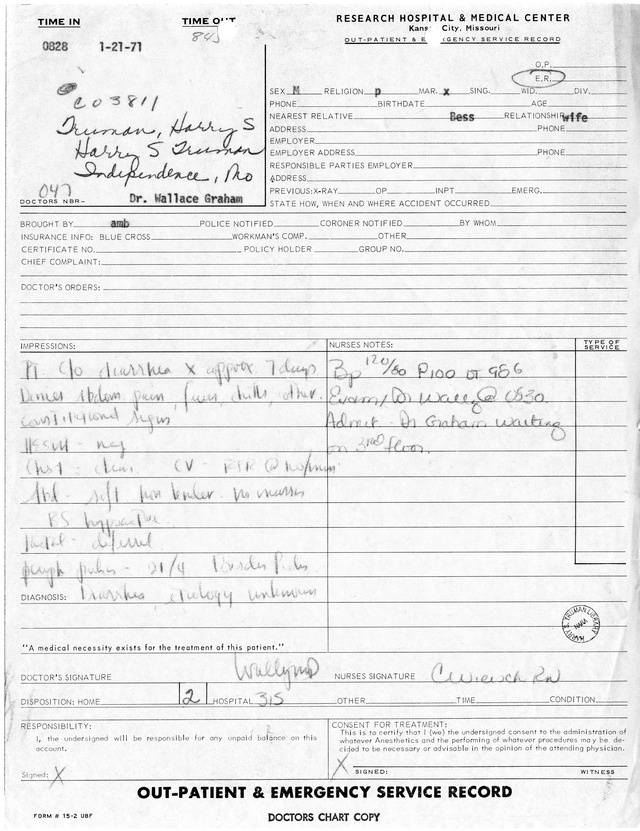 TIME IN TIME OUT
0828 1-21-71 845
RESEARCH HOSPITAL & MEDICAL CENTER
Kansas City, Missouri
OUT-PATIENT & E GENCY SERVICE RECORD
O.P.
E.R.
C03811
Truman, Harry S
Harry S Truman
Independence, Mo
047
DOCTORS NBR- Dr. Wallace Graham
SEX M RELIGION p MAR. x SING. WID. DIV.
PHONE BIRTHDATE AGE
NEAREST RELATIVE Bess RELATIONSHIP wife
ADDRESS PHONE
EMPLOYER
EMPLOYER ADDRESS PHONE
RESPONSIBLE PARTIES EMPLOYER
ADDRESS
PREVIOUS: X-RAY OP INPT. EMERG.
STATE HOW, WHEN AND WHERE ACCIDENT OCCURRED
BROUGHT BY amb POLICE NOTIFIED CORONER NOTIFIED BY WHOM
INSURANCE INFO: BLUE CROSS WORKMAN'S COMP. OTHER
CERTIFICATE NO. POLICY HOLDER GROUP NO.
CHIEF COMPLAINT:
DOCTOR'S ORDERS:
IMPRESSIONS:
Pt. c/o diarrhea x approx. 7 days
Denies abdom. pain, fever, chills, other
constitutional signs
HEENT - neg
Chest: clear. CV - RRR @ 100/min
Abd - soft non tender - no masses
BS hypoactive
rectal - deferred
periph pulses - 2+/4
DIAGNOSIS: Diarrhea, etiology unknown
NURSES NOTES:
Bp 120/80 P100 OT 98⁶
Exam / Dr Wally @ 0830.
Admit - Dr Graham waiting
on 3rd floor.
TYPE OF
SERVICE
HARRY S. TRUMAN LIBRARY
NARA
"A medical necessity exists for the treatment of this patient."
DOCTOR'S SIGNATURE Wally MD NURSES SIGNATURE RN
DISPOSITION: HOME 2 HOSPITAL 315 OTHER TIME CONDITION
RESPONSIBILITY:
I, the undersigned will be responsible for any unpaid balance on this
account.
Signed: X
CONSENT FOR TREATMENT:
This is to certify that I (we) the undersigned consent to the administration of
whatever Anesthetics and the performing of whatever procedures may be de-
cided to be necessary or advisable in the opinion of the attending physician.
X SIGNED: WITNESS
OUT-PATIENT & EMERGENCY SERVICE RECORD
FORM # 15-2 UBF DOCTORS CHART COPY